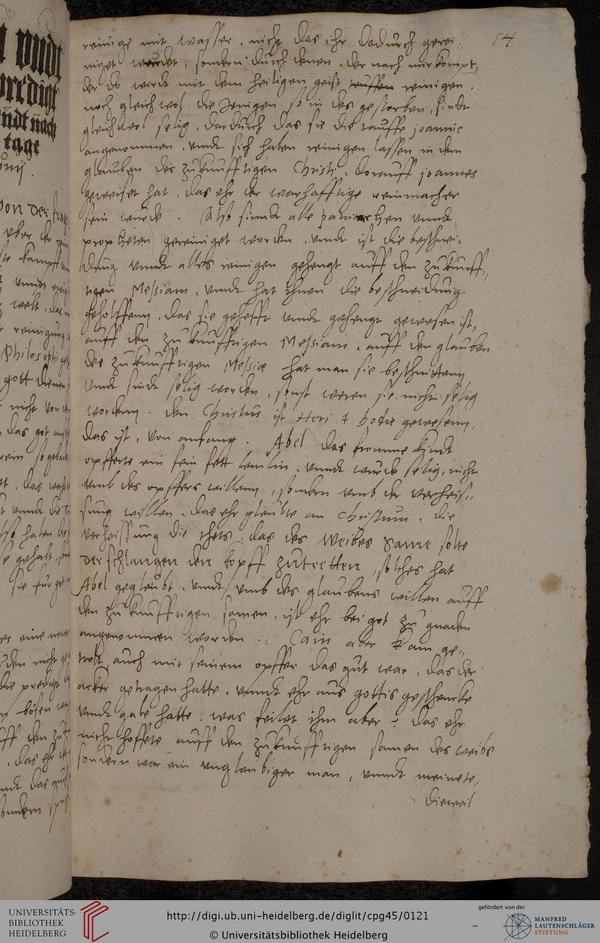 54
reinige mit wasser, nicht das ihr dadurch gerei-
niget werdet, sondern durch denen, der nach mir kompt,
der do wirdt mit dem heiligen geist reinigen.
noch gleich wol die jenigen so in des gestorben, sindt
gleichwol selig, dardurch das sie die tauffe joannis
angenommen, vnndt sich haben reinigen lassen in dem
glauben des zukunfftigen Christi, dorauff joannes
geweiset hat, das ehr der warhafftige reinmacher
sein wurde. Also sindt alle patriarchen vnndt
propheten gereiniget worden, vnndt ist die beschnei-
dung vnndt alles reinigen gehengt auff den zukunff-
tigen Messiam, vnndt hat ihnen die beschneidung
geholffenn, das sie gehefft vnndt gehengt gewesen ist,
auff den zukunfftigen Messiam, auff den glauben
des zukunfftigen Messiae hat man sie beschnittenn
vnndt sindt selig worden, sonst weren sie nicht selig
worden. den Christus ist Heri & hodie gewesenn,
das ist, von anfang. Abel das fromme kindt
opfferte ein fein fett lemlin, vnndt wurde selig, nicht
vmb des opffers willenn, sondern vmb der verheis-
sung willen, das ehr gleubte an Christum, die
verheissung die thets, das des Weibes Same solte
der schlangen den kopff zutretten, solches hat
Abel gegleubt, vnndt vmb des glaubens willen auff
den zukunfftigen samen, ist ehr bei got zu gnaden
angenommen worden. Cain aber kam ge-
trost, auch mit seinem opffer das gut war, das der
acker getragen hatte, vnndt ehr aus gottis geschencke
vnndt gabe hatte, was feilet ihm aber? das ehr
nicht hoffete auff den zukunfftigen samen des weibs
sondern war ein vnglaubiger man, vnndt meinete,
dieweil
UNIVERSITÄTS-
BIBLIOTHEK
HEIDELBERG
http://digi.ub.uni-heidelberg.de/diglit/cpg45/0121
© Universitätsbibliothek Heidelberg
gefördert von der
MANFRED
LAUTENSCHLÄGER
STIFTUNG